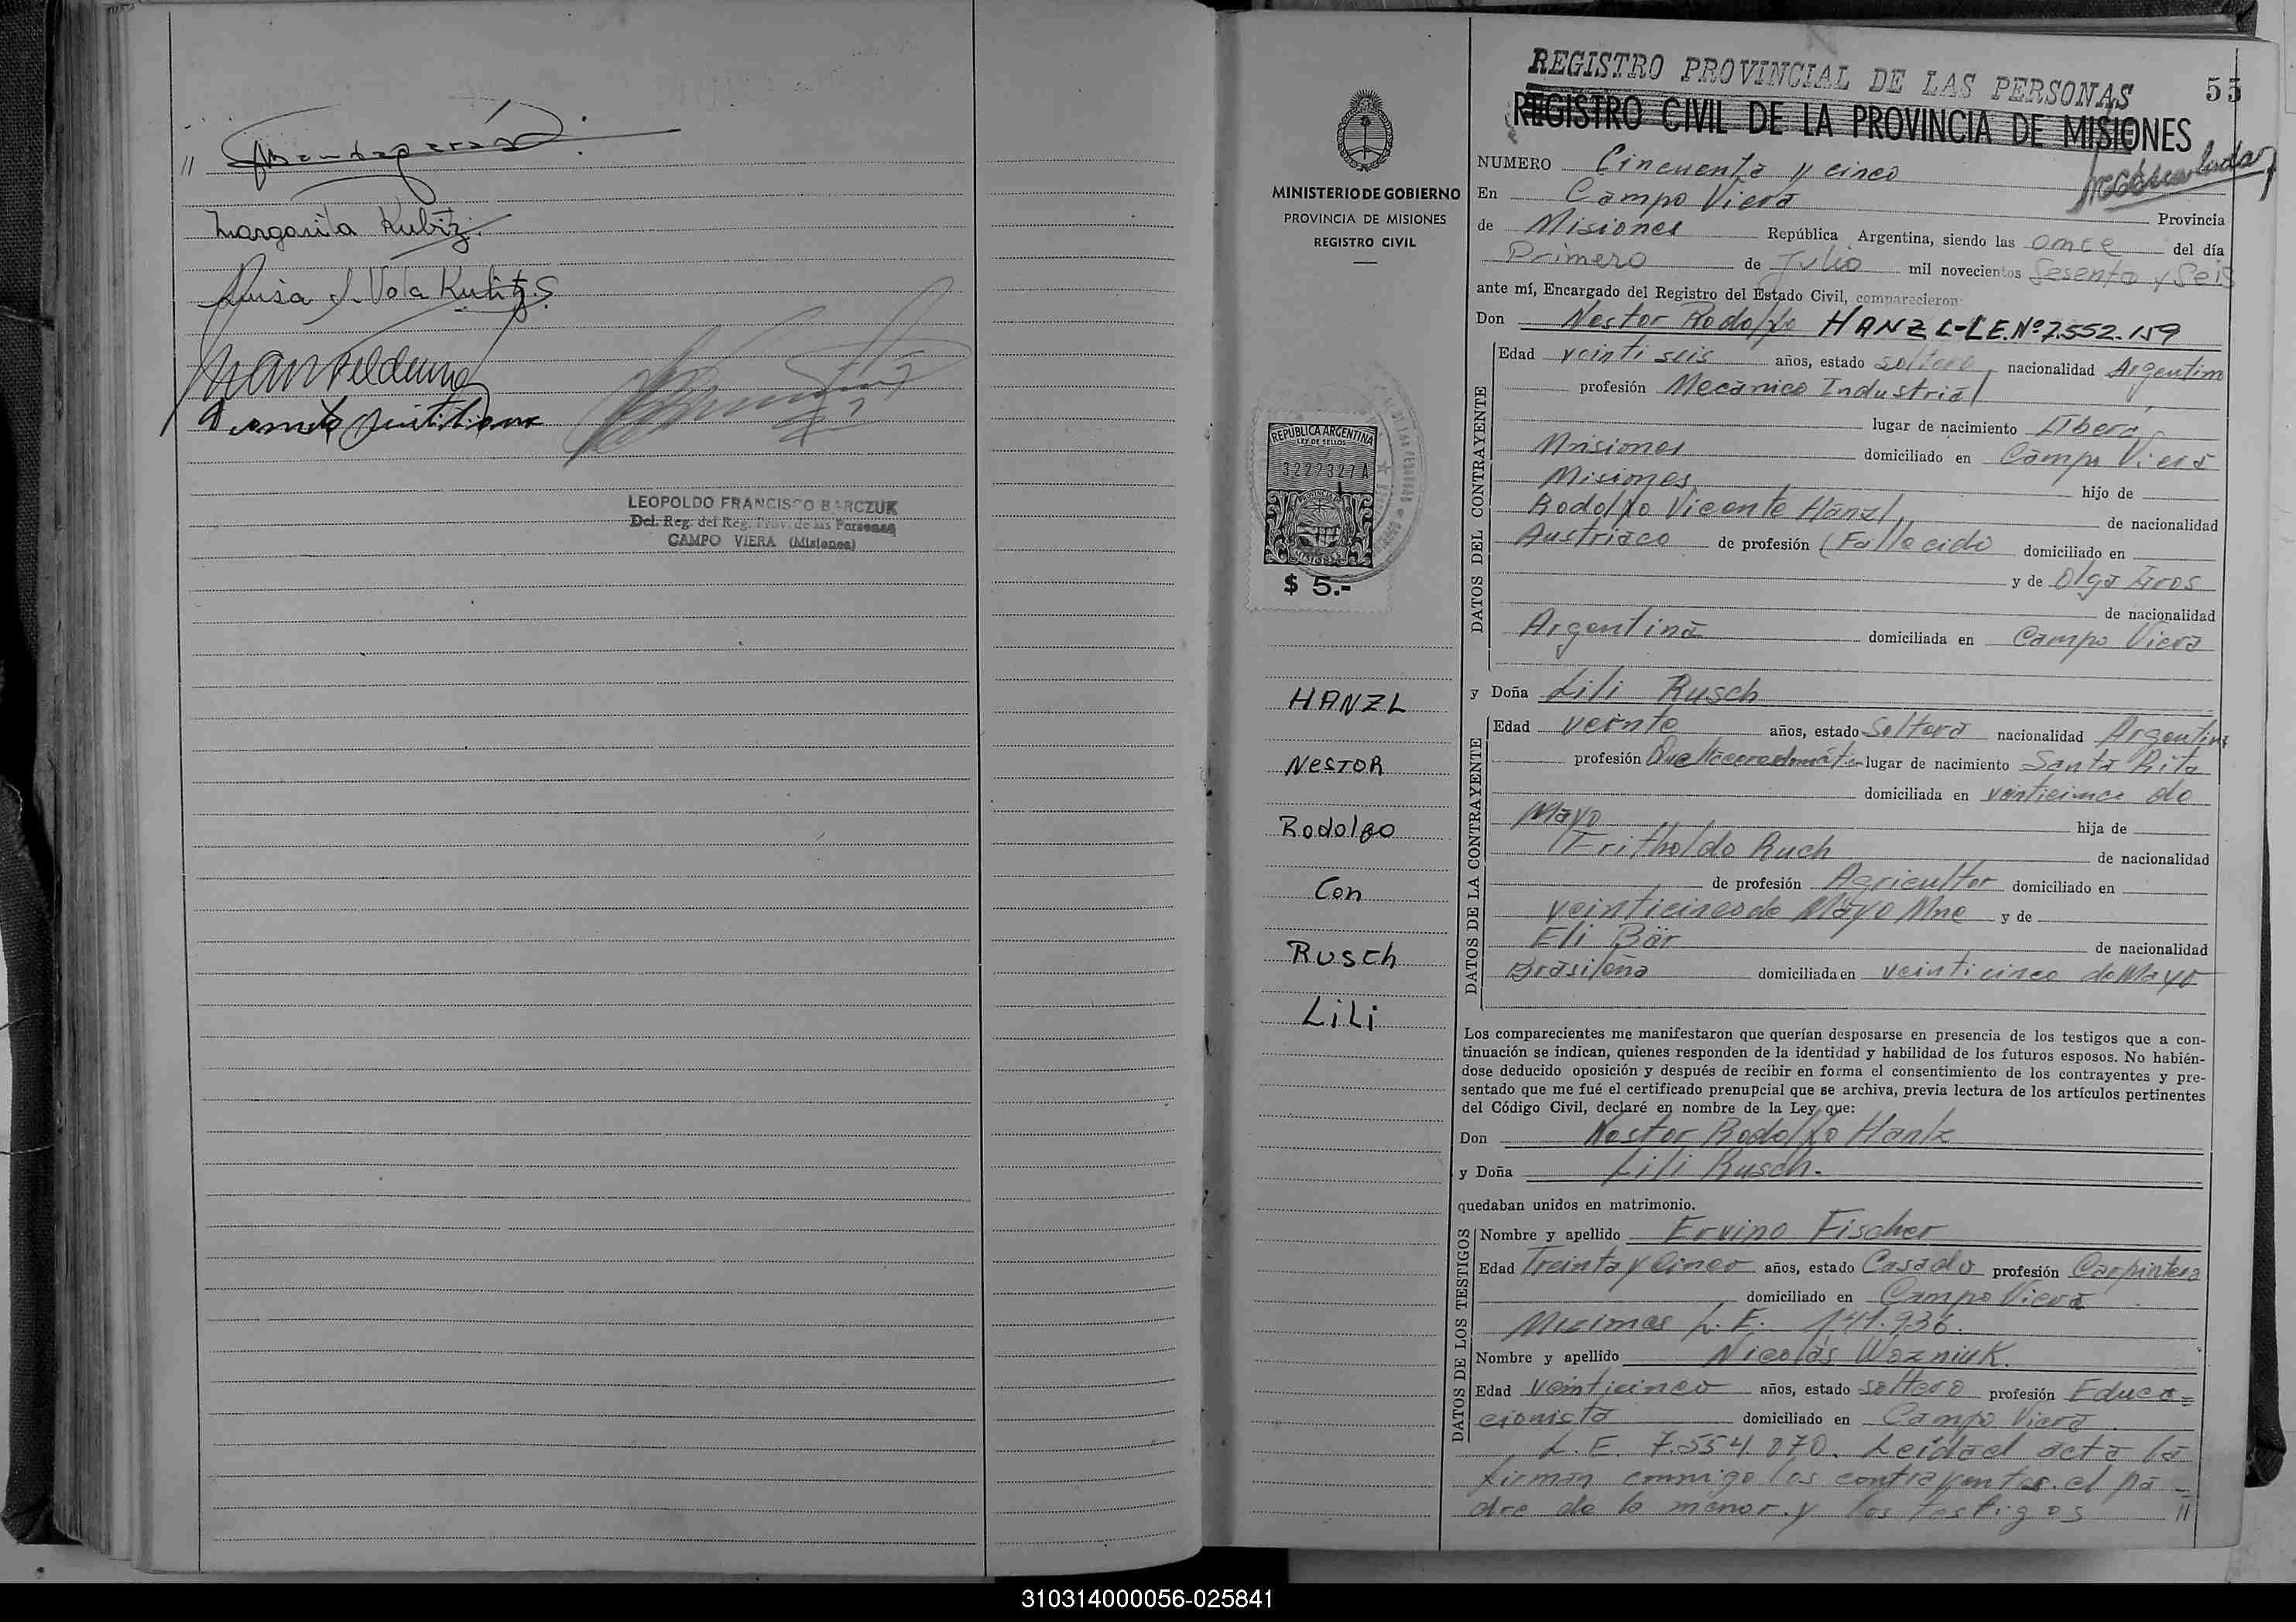 11
Margarita Kubitz.
Luisa J. Vola Kubitz
LEOPOLDO FRANCISCO BARCZUK
Del. Reg. del Reg. Prov. de las Personas
CAMPO VIERA (Misiones)
MINISTERIO DE GOBIERNO
PROVINCIA DE MISIONES
REGISTRO CIVIL
REPUBLICA ARGENTINA
LEY DE SELLOS
3222327 A
$ 5.-
HANZL
NESTOR
Rodolfo
Con
Rusch
LiLi
REGISTRO PROVINCIAL DE LAS PERSONAS
55
REGISTRO CIVIL DE LA PROVINCIA DE MISIONES
NUMERO Cincuenta y cinco
En Campo Viera Provincia
de Misiones República Argentina, siendo las once del día
Primero de Julio mil novecientos Sesenta y Seis
ante mí, Encargado del Registro del Estado Civil, comparecieron:
Don Nestor Rodolfo HANZL-LE.Nº7.552.159
DATOS DEL CONTRAYENTE
Edad veinti seis años, estado soltero, nacionalidad Argentino
profesión Mecanico Industrial
lugar de nacimiento
Misiones domiciliado en Campo Viera
Misiones hijo de
Rodolfo Vicente Hanzl, de nacionalidad
Austriaco de profesión (Fallecido domiciliado en
y de Olga
de nacionalidad
Argentina domiciliada en Campo Viera
y Doña Lili Rusch
DATOS DE LA CONTRAYENTE
Edad veinte años, estado Soltera nacionalidad Argentina
profesión lugar de nacimiento Santa Rita
domiciliada en veinticinco de
Mayo hija de
Fritholdo Ruch de nacionalidad
de profesión Agricultor domiciliado en
veinticinco de Mayo Mne y de
Eli Bär de nacionalidad
Brasileña domiciliada en veinticinco de Mayo
Los comparecientes me manifestaron que querían desposarse en presencia de los testigos que a con-
tinuación se indican, quienes responden de la identidad y habilidad de los futuros esposos. No habién-
dose deducido oposición y después de recibir en forma el consentimiento de los contrayentes y pre-
sentado que me fué el certificado prenupcial que se archiva, previa lectura de los artículos pertinentes
del Código Civil, declaré en nombre de la Ley que:
Don Nestor Rodolfo Hanlz
y Doña Lili Rusch.
quedaban unidos en matrimonio.
DATOS DE LOS TESTIGOS
Nombre y apellido Ervino Fischer
Edad Treinta y Cinco años, estado Casado profesión Carpintero
domiciliado en Campo Viera
L. E. 141.936.
Nombre y apellido Nicolás Wozniuk.
Edad veinticinco años, estado soltero profesión Educa=
cionista domiciliado en Campo Viera
L. E. 7.554.870. Leída el acta la
firman conmigo los contrayentes. el pa-
dre de la menor. y los testigos //
310314000056-025841